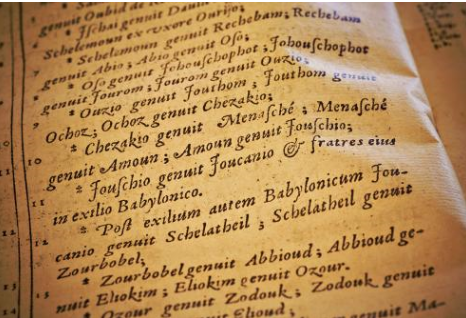 genuit Oubid de
* Jſchai genuit
Schelemoun ex vxore Ourijo;
7 * Schelemoun genuit Rechebam; Rechebam
genuit Abio; Abio genuit Oſo;
8 * Oſo genuit Jehouſchophot; Johouſchophot
genuit Jourom; Jourom genuit Ouzio;
9 * Ouzio genuit Jouthom; Jouthom genuit
Ochoz; Ochoz genuit Chezakio;
10 * Chezakio genuit Menaſché; Menaſché
genuit Amoun; Amoun genuit Jouſchio;
11 * Jouſchio genuit Joucanio & fratres eius
in exilio Babylonico.
12 * Poſt exilium autem Babylonicum Jou-
canio genuit Schelatheil; Schelatheil genuit
Zourbobel;
13 * Zourbobel genuit Abbioud; Abbioud ge-
nuit Eliokim; Eliokim genuit Ozour.
14 * Ozour genuit Zodouk; Zodouk genuit
genuit Elioud;
genuit Ma-